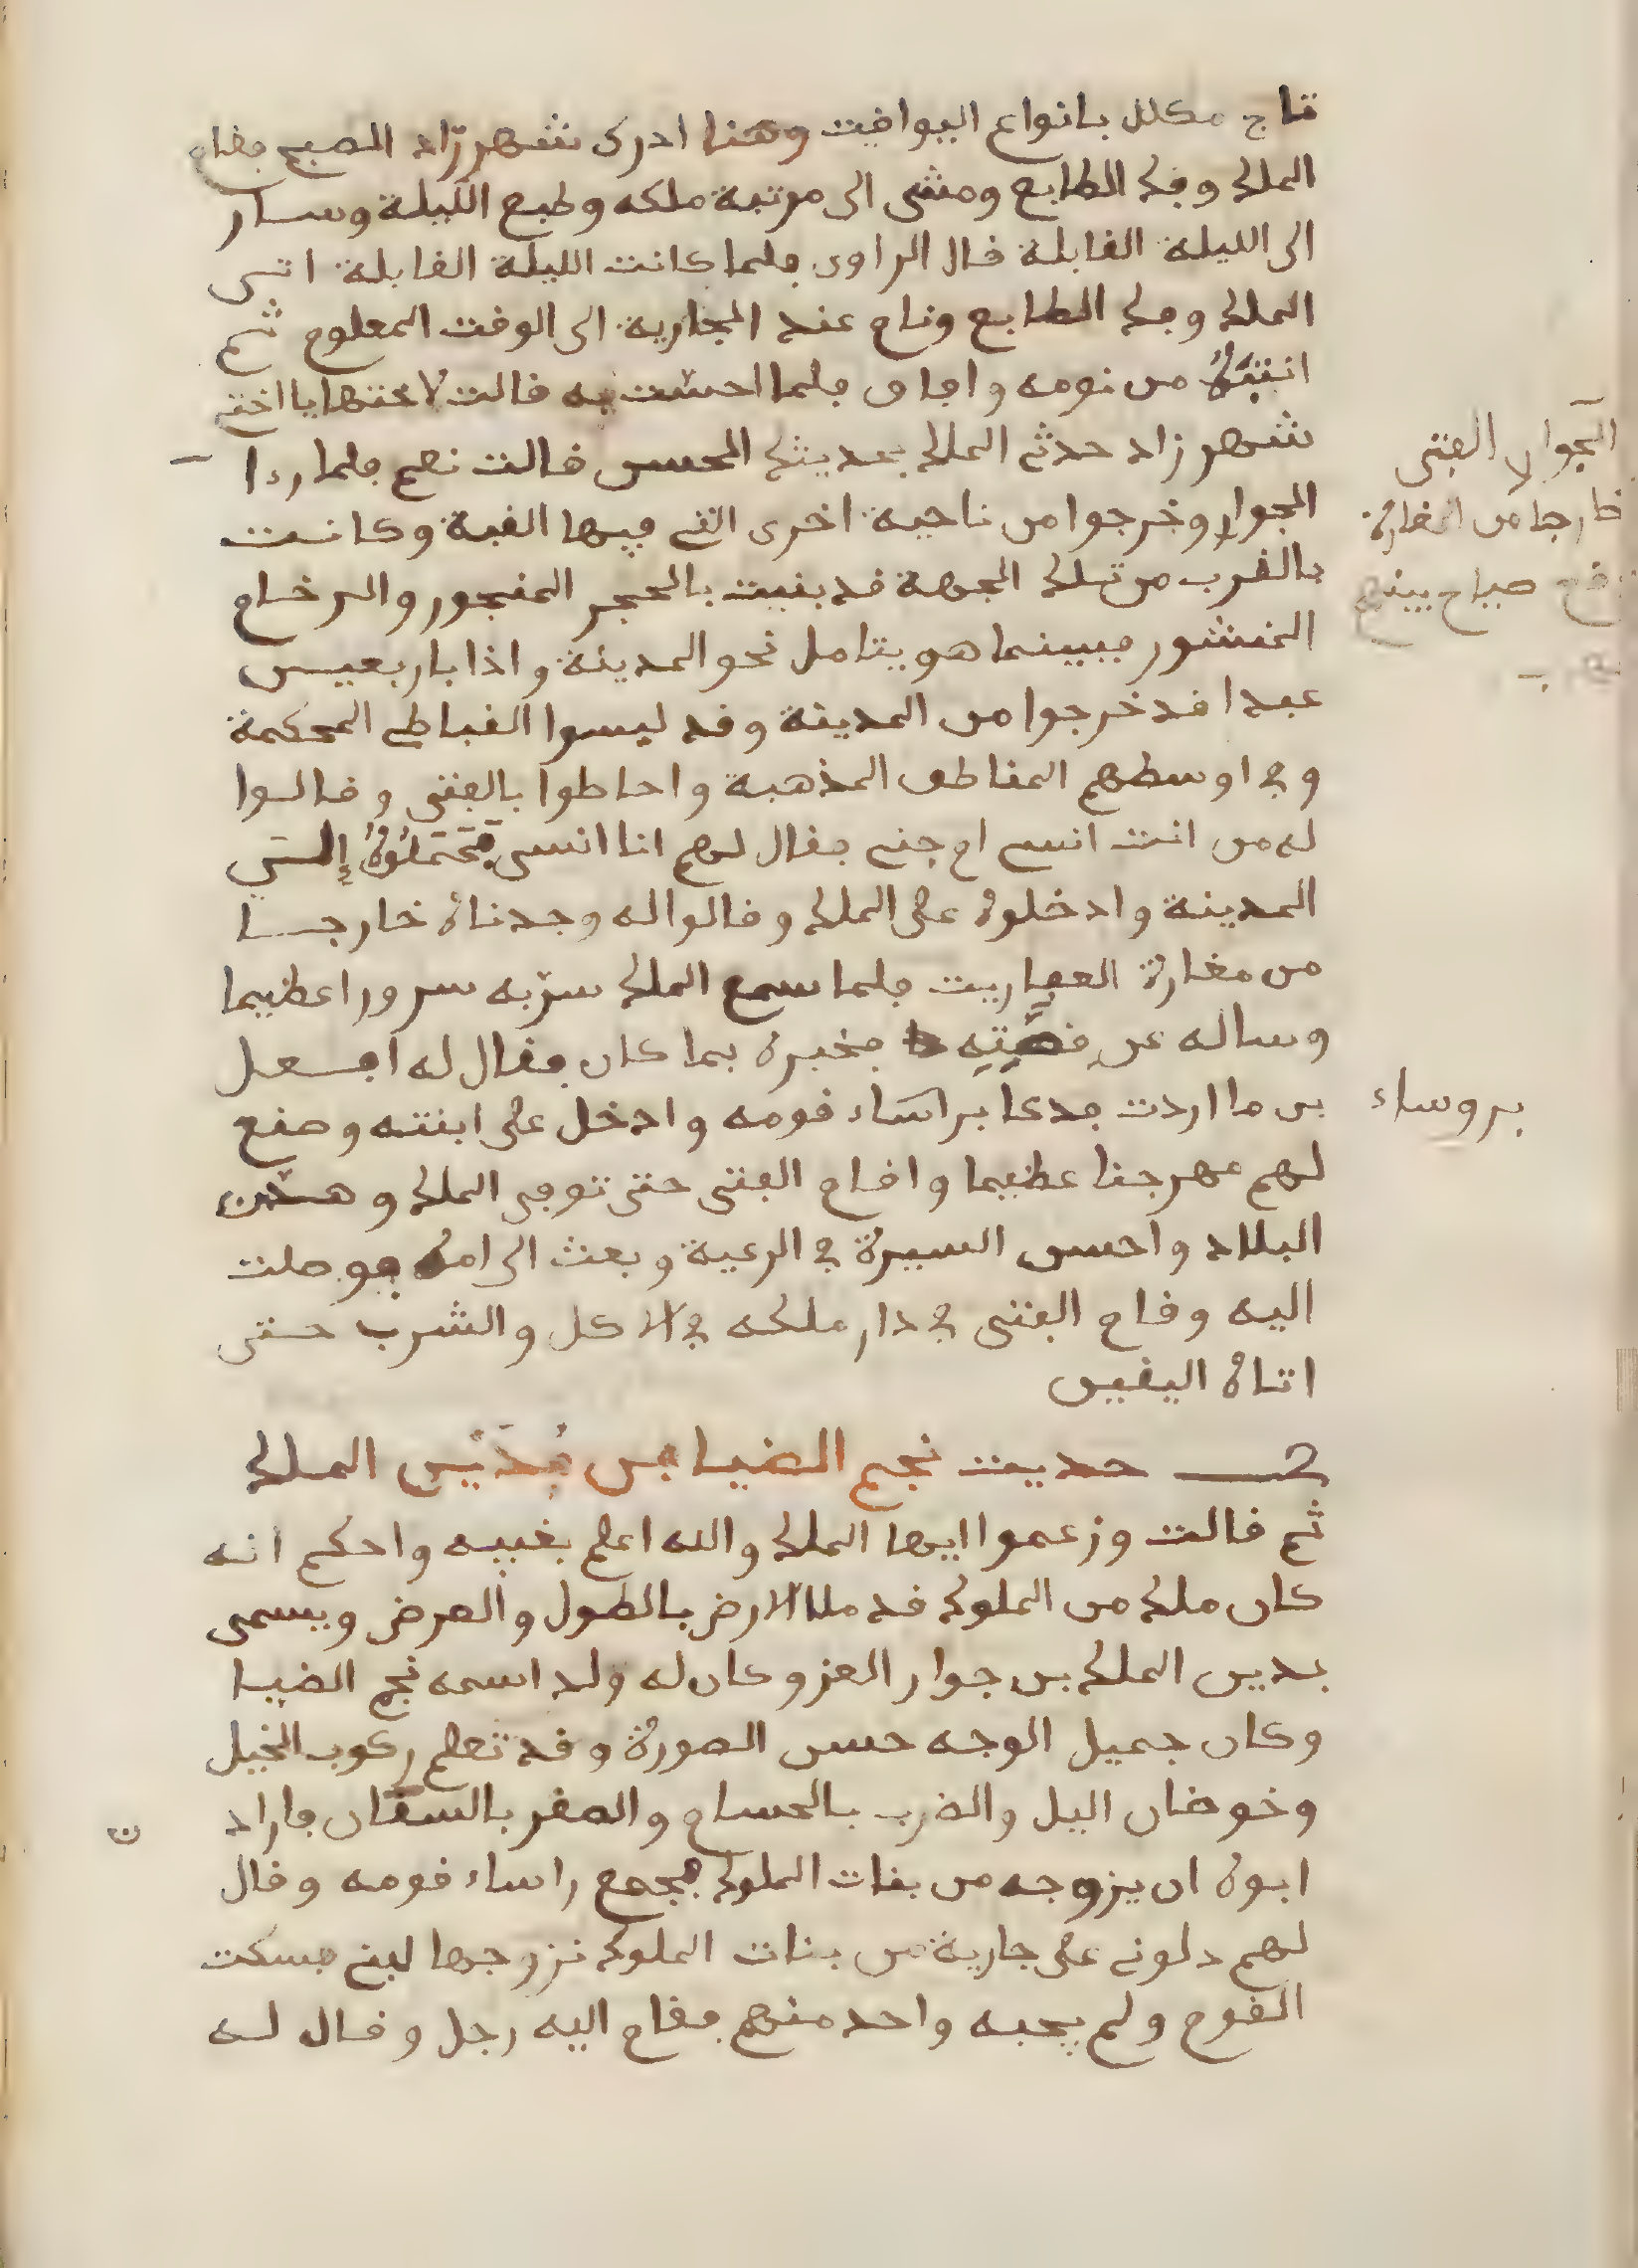 تاج مكلل بانواع اليواقيت وهنا ادرك شهرزاد الصبح فقام
الملك وفك الطابع ومشى الى مرتبة ملكه وطبع الليلة وسار
الى الليلة القابلة قال الراوي فلما كانت الليلة القابلة اتى
الملك وفك الطابع ونام عند الجارية الى الوقت المعلوم ثم
انتبَهُ من نومه وافاق فلما احسّت به قالت لاختها يا اختي
شهرزاد حدثي الملك بحديثك الحسن قالت نعم فلما ردا
الجوار وخرجوا من ناحية اخرى التي فيها القبة وكانت
بالقرب من تلك الجهة قد بنيت بالحجر المنجور والرخام
المنشور فبينما هو يتامل نحو المدينة واذا باربعين
عبدا قد خرجوا من المدينة وقد لبسوا القباطي المحكمة
وفي اوسطهم المناطق المذهبة واحاطوا بالفتى وقالوا
له من انت انسي ام جني فقال لهم انا انسي فَحَمَلُوهُ إلى
المدينة وادخلوه على الملك وقالوا له وجدناه خارجا
من مغارة العفاريت فلما سمع الملك سرّ به سرورا عظيما
وساله عن قصَّتِهِ فخبره بما كان فقال له افعل
بي ما اردت فدعا براساء قومه وادخل على ابنته وصنع
لهم مهرجنا عظيما واقام الفتى حتى توفي الملك وهدّن
البلاد واحسن السيرة في الرعية وبعث الى امه فوصلت
اليه وقام الفتى في دار ملكه في الاكل والشرب حتى
اتاه اليقين
حديث نجم الضيا بن مُدَيْن الملك
ثم قالت وزعموا ايها الملك والله اعلم بغيبه واحكم انه
كان ملك من الملوك قد ملا الارض بالطول والعرض ويسمى
بدين الملك بن جوار العز وكان له ولد اسمه نجم الضيا
وكان جميل الوجه حسن الصورة وقد تعلم ركوب الخيل
وخوضان اليل والضرب بالحسام والصفر بالسنّان فاراد
ابوه ان يزوجه من بنات الملوك فجمع راساء قومه وقال
لهم دلوني على جارية من بنات الملوك نزوجها لبني فسكت
القوم ولم يجبه واحد منهم فقام اليه رجل وقال له
الجوار لا الفتى
خارجا من المغارة
وقع صياح بينهم
بروساء
ن